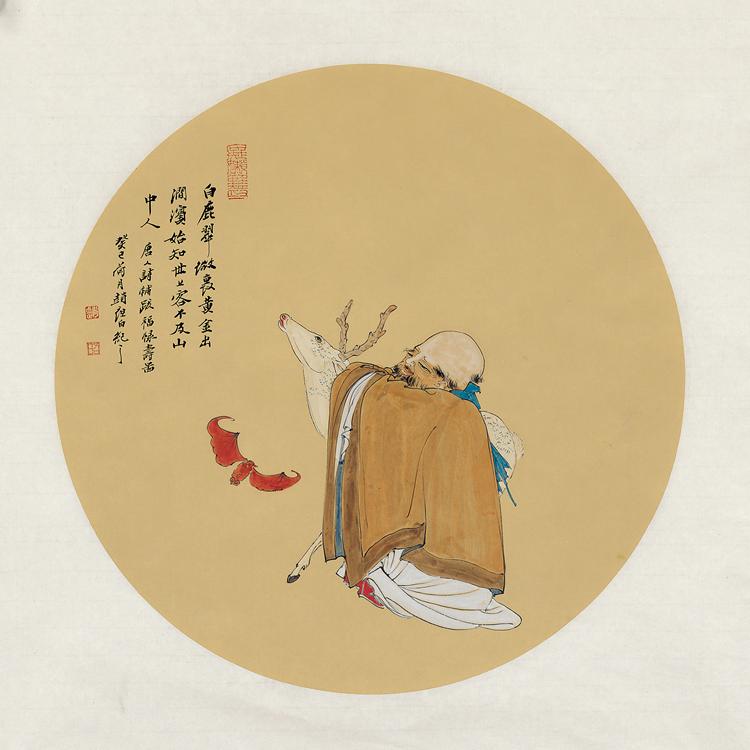 白鹿翠微裏黄金出
澗濱始知世上客不及山
中人 唐人詩補跋福祿壽
癸巳荷月趙白紀之